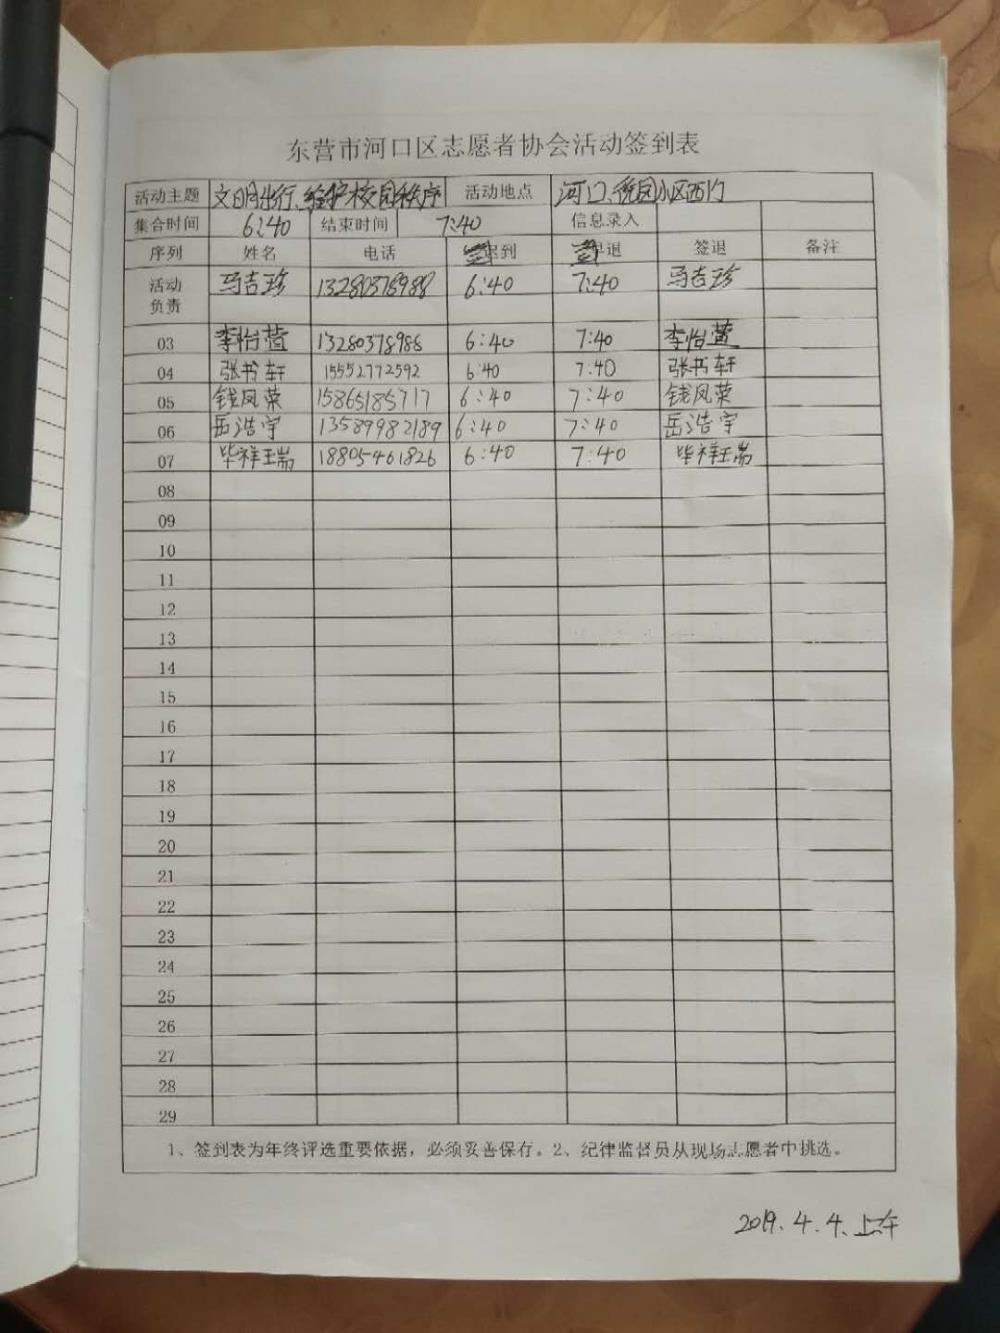 东营市河口区志愿者协会活动签到表
活动主题 文明出行、维护校园秩序 活动地点 河口、悦园小区西门
集合时间 6:40 结束时间 7:40 信息录入
序列 姓名 电话 到 退 签退 备注
活动负责 马吉珍 13280378988 6:40 7:40 马吉珍
03 李怡萱 13280378988 6:40 7:40 李怡萱
04 张书轩 15552772592 6:40 7:40 张书轩
05 钱凤荣 15865185717 6:40 7:40 钱凤荣
06 岳浩宇 13589982189 6:40 7:40 岳浩宇
07 毕祥瑞 18805461826 6:40 7:40 毕祥瑞
08
09
10
11
12
13
14
15
16
17
18
19
20
21
22
23
24
25
26
27
28
29
1、签到表为年终评选重要依据，必须妥善保存。2、纪律监督员从现场志愿者中挑选。
2019.4.4.上午